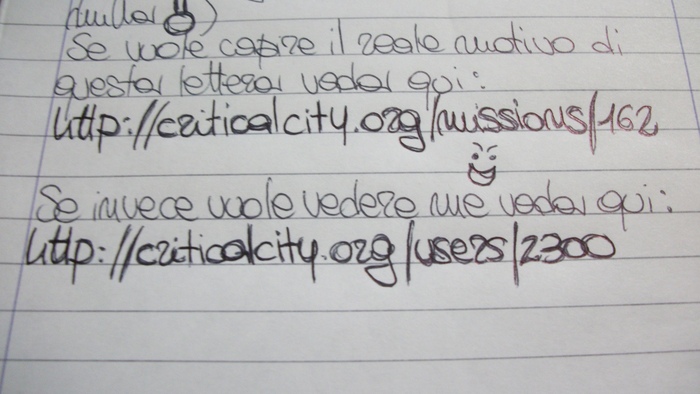 Se vuole capire il reale motivo di
questa lettera veda qui:
http://criticalcity.org/missions/162
Se invece vuole vedere me veda qui:
http://criticalcity.org/users/2300